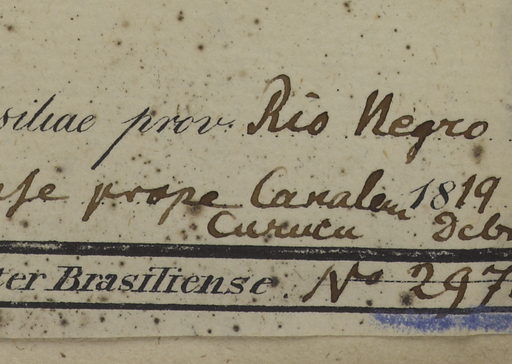 siliae prov. Rio Negro
prope Canalem 1819
Curucu Debr
ter Brasiliense. No 297